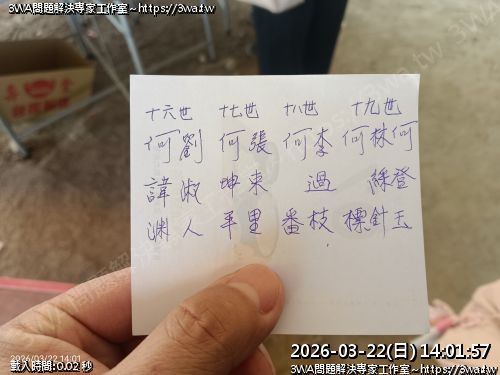 3WA問題解決專家工作室~https://3wa.tw
十六世 十七世 十八世 十九世
何劉 何張 何李 何林何
諱淑 坤東 過 綠登
渊人 平里 番枝 標針玉
2026/03/22 14:01
載入時間:0.02 秒
2026-03-22(日) 14:01:57
3WA問題解決專家工作室~https://3wa.tw